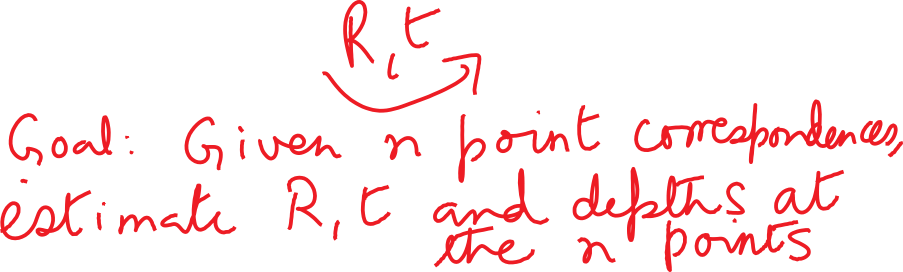 R, t
Goal: Given n point correspondences,
estimate R, t and depths at
the n points